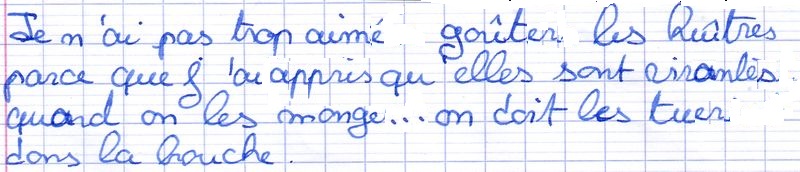 Je n'ai pas trop aimé goûter les huîtres
parce que j'ai appris qu'elles sont vivantes
quand on les mange... on doit les tuer
dans la bouche.